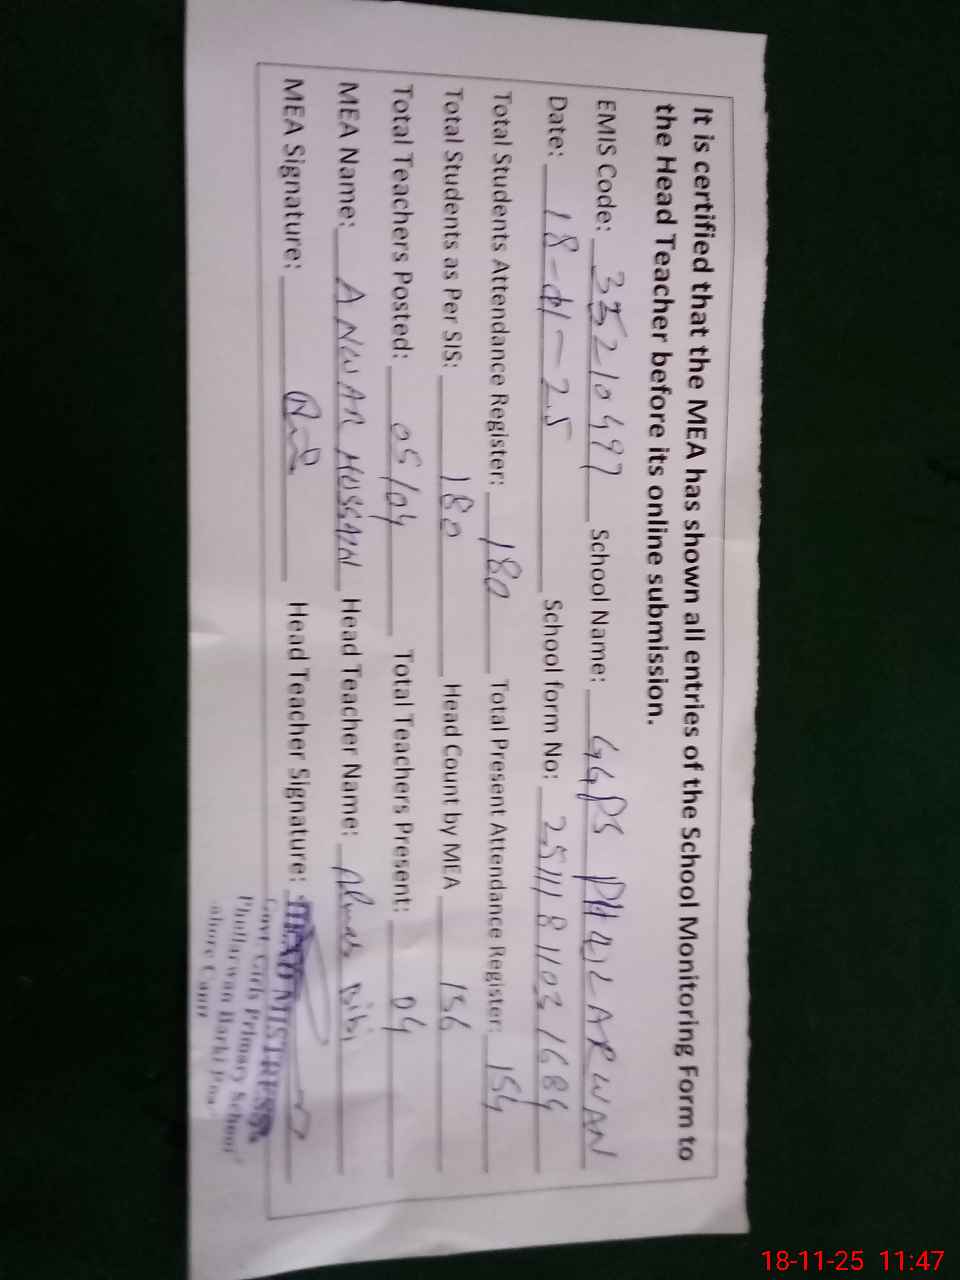 It is certified that the MEA has shown all entries of the School Monitoring Form to
the Head Teacher before its online submission.
EMIS Code: 35210497 School Name: GGPS PHALLARWAN
Date: 18-11-25 School form No: 25111811031684
Total Students Attendance Register: 180 Total Present Attendance Register: 154
Total Students as Per SIS: 180 Head Count by MEA 156
Total Teachers Posted: 05/04 Total Teachers Present: 04
MEA Name: ANWAR HUSSAIN Head Teacher Name: Bibi
MEA Signature: Head Teacher Signature:
HEAD MISTRESS
Govt. Girls Primary School
Phullarwan Barki Road
Lahore Cantt
18-11-25 11:47